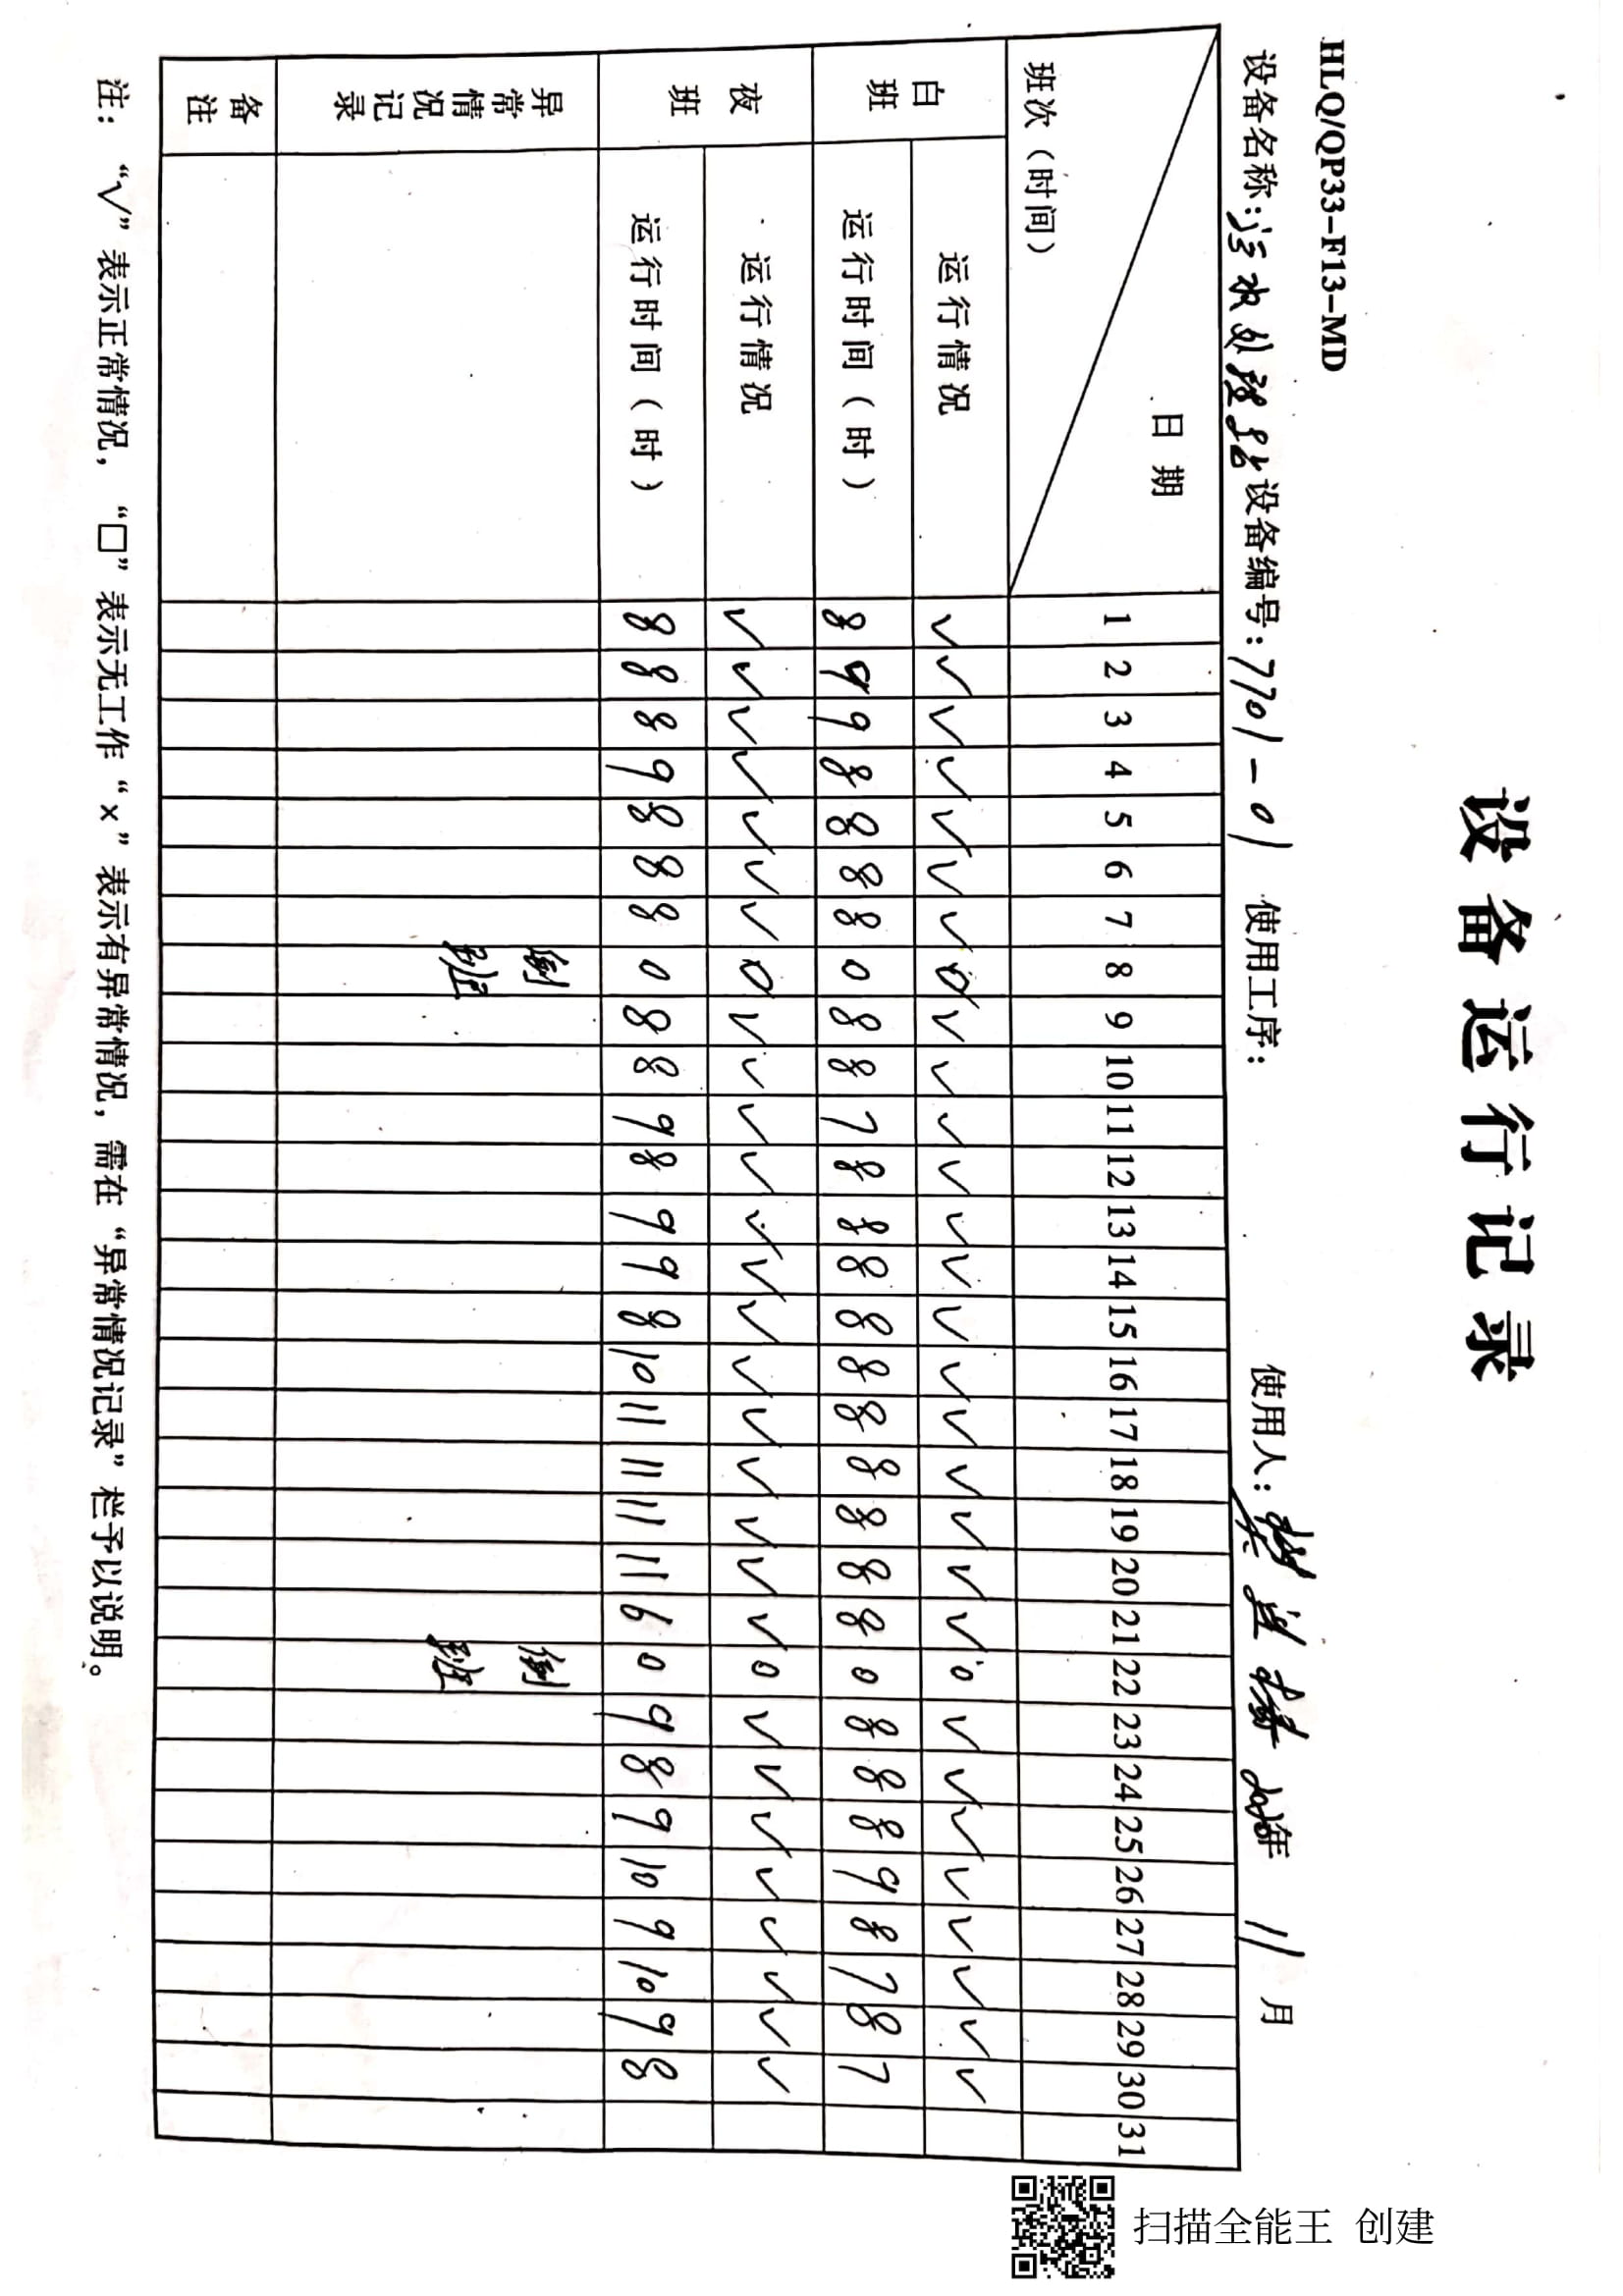 设备运行记录
HLQ/QP33-F13-MD
设备名称:污水处理设备 设备编号:7701-01 使用工序: 使用人: 2020年 11 月
班次(时间) 日期 1 2 3 4 5 6 7 8 9 10 11 12 13 14 15 16 17 18 19 20 21 22 23 24 25 26 27 28 29 30 31
白班 运行情况 √ √ √ √ √ √ √ 0 √ √ √ √ √ √ √ √ √ √ √ √ √ 0 √ √ √ √ √ √ √ √
运行时间(时) 8 9 9 8 8 8 8 0 8 8 7 8 8 8 8 8 8 8 8 8 8 0 8 8 8 9 8 7 8 7
夜班 运行情况 √ √ √ √ √ √ √ 0 √ √ √ √ √ √ √ √ √ √ √ √ √ 0 √ √ √ √ √ √ √ √
运行时间(时) 8 8 8 9 8 8 8 0 8 8 9 8 9 9 8 10 11 11 11 11 6 0 9 8 9 10 9 10 9 8
异常情况记录 倒班 倒班
备注
注: “√”表示正常情况, “□”表示无工作“×”表示有异常情况, 需在“异常情况记录”栏予以说明。
扫描全能王 创建